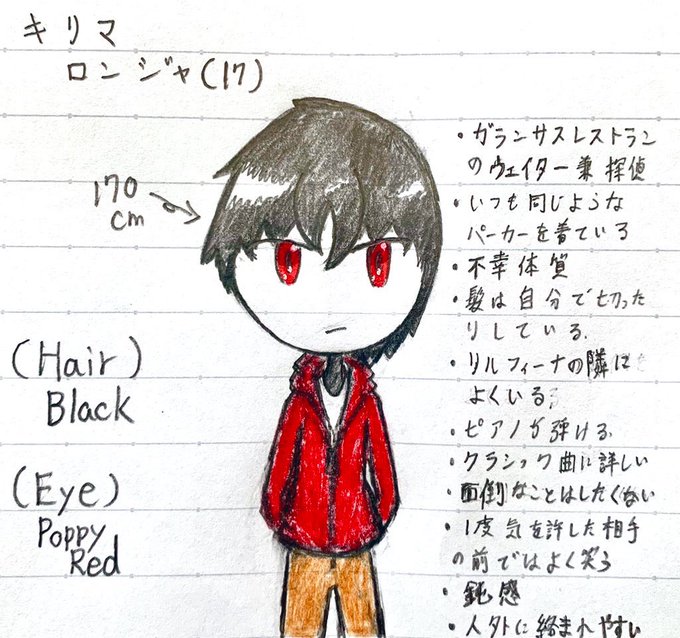 キリマ
ロンジャ(17)
170
cm
(Hair)
Black
(Eye)
Poppy
Red
・ガランサスレストラン
のウェイター兼探偵
・いつも同じような
パーカーを着ている
・不幸体質
・髪は自分で切った
りしている.
・リルフィーナの隣に
よくいる
・ピアノが弾ける.
・クラシック曲に詳しい
・面倒なことはしたくない
・1度気を許した相手
の前ではよく笑う
・鈍感
・人外に絡まれやすい